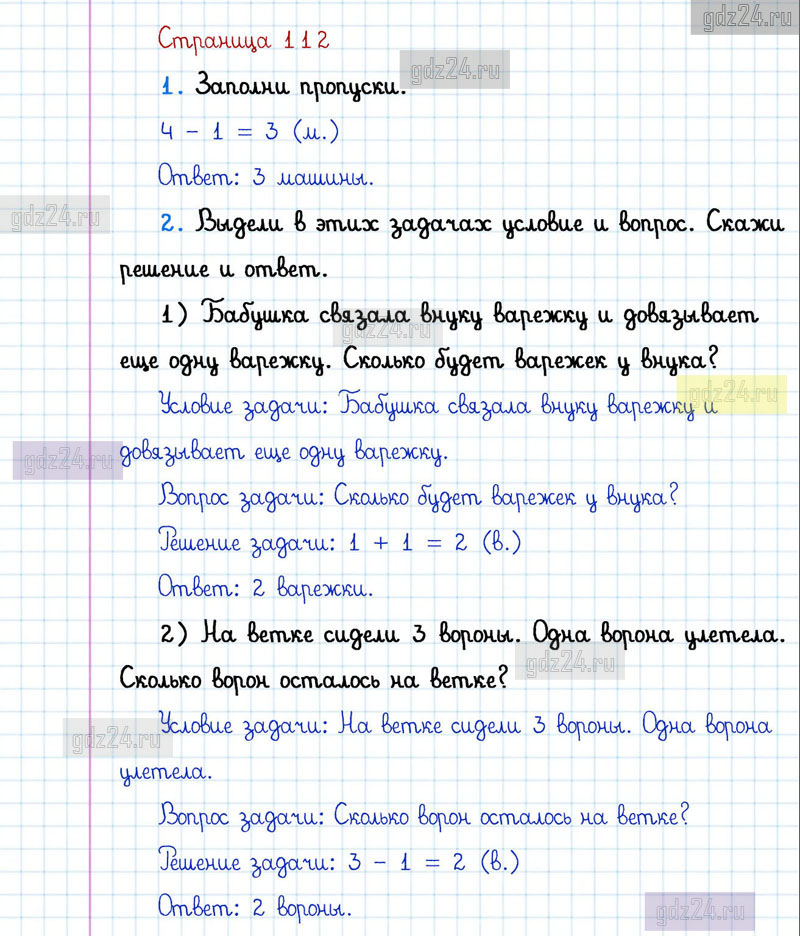 gdz24.ru
Страница 112
gdz24.ru
1. Заполни пропуски.
4 - 1 = 3 (м.)
Ответ: 3 машины.
gdz24.ru
2. Выдели в этих задачах условие и вопрос. Скажи
решение и ответ.
1) Бабушка связала внуку варежку и довязывает
gdz24.ru
еще одну варежку. Сколько будет варежек у внука?
gdz24.ru
Условие задачи: Бабушка связала внуку варежку и
gdz24.ru
довязывает еще одну варежку.
Вопрос задачи: Сколько будет варежек у внука?
Решение задачи: 1 + 1 = 2 (в.)
Ответ: 2 варежки.
2) На ветке сидели 3 вороны. Одна ворона улетела.
gdz24.ru
Сколько ворон осталось на ветке?
Условие задачи: На ветке сидели 3 вороны. Одна ворона
gdz24.ru
улетела.
Вопрос задачи: Сколько ворон осталось на ветке?
Решение задачи: 3 - 1 = 2 (в.)
Ответ: 2 вороны.
gdz24.ru